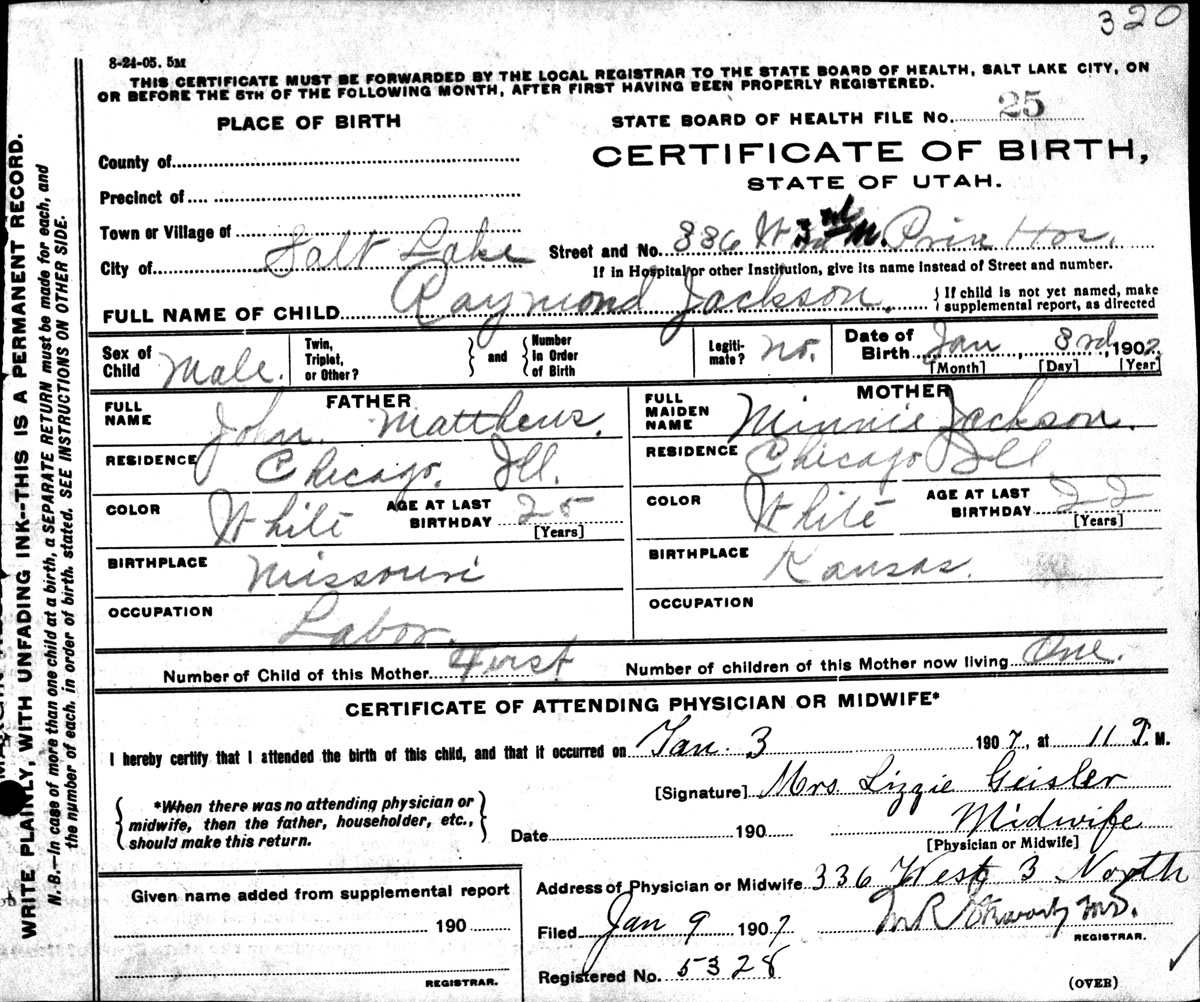 320
8-24-05. 5M
THIS CERTIFICATE MUST BE FORWARDED BY THE LOCAL REGISTRAR TO THE STATE BOARD OF HEALTH, SALT LAKE CITY, ON
OR BEFORE THE 5TH OF THE FOLLOWING MONTH, AFTER FIRST HAVING BEEN PROPERLY REGISTERED.
PLACE OF BIRTH
STATE BOARD OF HEALTH FILE No. 25
County of
CERTIFICATE OF BIRTH,
STATE OF UTAH.
Precinct of
Town or Village of
City of Salt Lake
Street and No. 336 W 3rd N. Priv Hos.
If in Hospital or other Institution, give its name instead of Street and number.
FULL NAME OF CHILD Raymond Jackson.
{ If child is not yet named, make
supplemental report, as directed
Sex of Child Male.
Twin, Triplet, or Other? } and { Number in Order of Birth
Legitimate? no.
Date of Birth Jan 3rd, 1907
[Month] [Day] [Year]
FATHER
MOTHER
FULL NAME John Matthews.
FULL MAIDEN NAME Minnie Jackson.
RESIDENCE Chicago, Ill.
RESIDENCE Chicago Ill
COLOR White AGE AT LAST BIRTHDAY 25 [Years]
COLOR White AGE AT LAST BIRTHDAY 22 [Years]
BIRTHPLACE Missouri
BIRTHPLACE Kansas.
OCCUPATION Labor.
OCCUPATION
Number of Child of this Mother First Number of children of this Mother now living One.
CERTIFICATE OF ATTENDING PHYSICIAN OR MIDWIFE*
I hereby certify that I attended the birth of this child, and that it occurred on Jan. 3 1907, at 11 P. M.
{ *When there was no attending physician or
midwife, then the father, householder, etc.,
should make this return. }
[Signature] Mrs Lizzie Geisler
Date 190 Midwife
[Physician or Midwife]
Given name added from supplemental report
190
REGISTRAR.
Address of Physician or Midwife 336 West 3 North
Filed Jan 9 1907 M.D.
REGISTRAR.
Registered No. 5328
(OVER)
WRITE PLAINLY, WITH UNFADING INK--THIS IS A PERMANENT RECORD.
N. B.—In case of more than one child at a birth, a SEPARATE RETURN must be made for each, and
the number of each, in order of birth, stated. SEE INSTRUCTIONS ON OTHER SIDE.